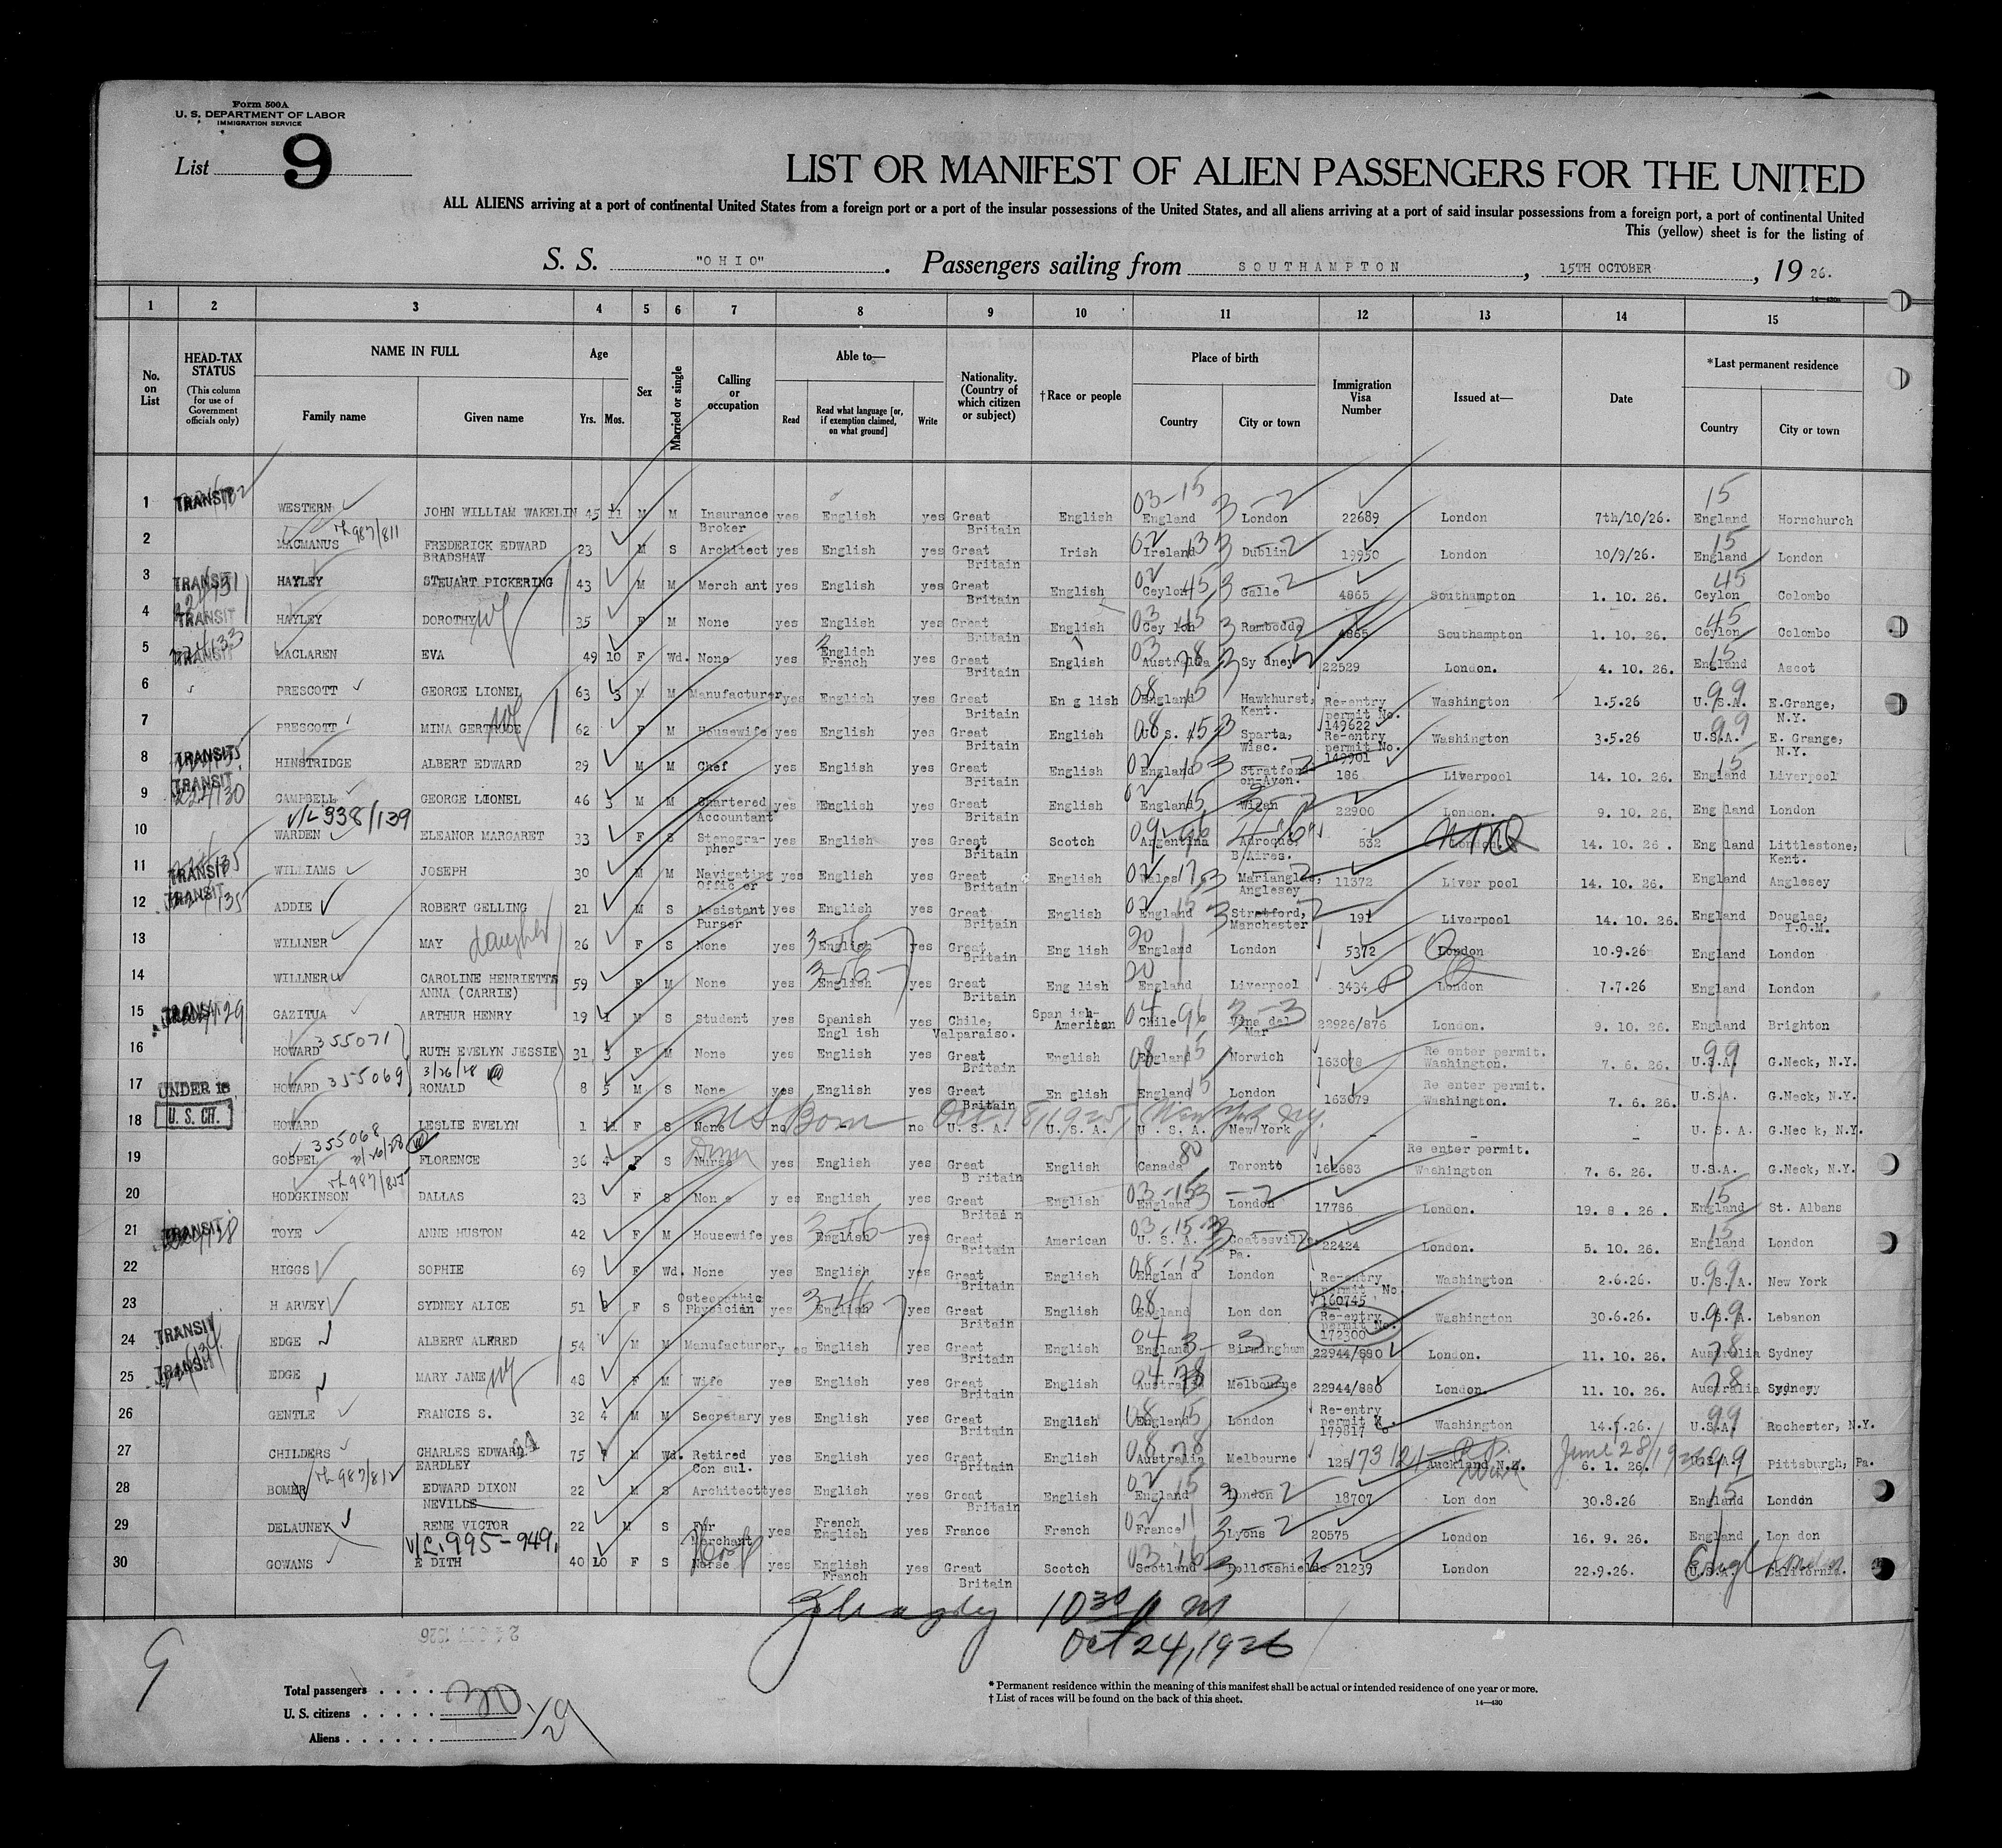 Form 500A
U. S. DEPARTMENT OF LABOR
IMMIGRATION SERVICE
List 9
LIST OR MANIFEST OF ALIEN PASSENGERS FOR THE UNITED
ALL ALIENS arriving at a port of continental United States from a foreign port or a port of the insular possessions of the United States, and all aliens arriving at a port of said insular possessions from a foreign port, a port of continental United
This (yellow) sheet is for the listing of
S. S. "OHIO". Passengers sailing from SOUTHAMPTON, 15TH OCTOBER, 1926.
1 2 3 4 5 6 7 8 9 10 11 12 13 14 15
No. on List
HEAD-TAX STATUS (This column for use of Government officials only)
NAME IN FULL Family name Given name
Age Yrs. Mos.
Sex
Married or single
Calling or occupation
Able to— Read Read what language [or, if exemption claimed, on what ground] Write
Nationality. (Country of which citizen or subject)
†Race or people
Place of birth Country City or town
Immigration Visa Number
Issued at—
Date
*Last permanent residence Country City or town
1 TRANSIT WESTERN JOHN WILLIAM WAKELIN 45 11 M M Insurance Broker yes English yes Great Britain English England London 22689 London 7th/10/26. England Hornchurch
2 MACMANUS FREDERICK EDWARD BRADSHAW 23 M S Architect yes English yes Great Britain Irish Ireland Dublin 19950 London 10/9/26. England London
3 TRANSIT HAYLEY STEUART PICKERING 43 M M Merch ant yes English yes Great Britain English Ceylon Galle 4865 Southampton 1. 10. 26. Ceylon Colombo
4 TRANSIT HAYLEY DOROTHY 35 F M None yes English yes Great Britain English Cey lon Rambodde 4865 Southampton 1. 10. 26. Ceylon Colombo
5 TRANSIT MACLAREN EVA 49 10 F Wd. None yes English French yes Great Britain English Australia Sy dney 22529 London. 4. 10. 26. England Ascot
6 PRESCOTT GEORGE LIONEL 63 3 M M Manufacturer yes English yes Great Britain En g lish England Hawkhurst, Kent. Re-entry permit No. 149622 Washington 1.5.26 U.S.A. E.Grange, N.Y.
7 PRESCOTT MINA GERTRUDE 62 F M Housewife yes English yes Great Britain English U. S. A. Sparta, Wisc. Re-entry permit No. 149901 Washington 3.5.26 U.S.A. E. Grange, N.Y.
8 TRANSIT HINSTRIDGE ALBERT EDWARD 29 M M Chef yes English yes Great Britain English England Stratford on-Avon. 186 Liverpool 14. 10. 26. England Liverpool
9 TRANSIT CAMPBELL GEORGE LIONEL 46 3 M M Chartered Accountant yes English yes Great Britain English England Wigan 22900 London. 9. 10. 26, Eng land London
10 V/L 938/139 WARDEN ELEANOR MARGARET 33 F S Stenogra- pher yes English yes Great Britain Scotch Argentina Adroque, B Aires. 532 London 14. 10. 26 . Eng land Littlestone, Kent.
11 TRANSIT WILLIAMS JOSEPH 30 M M Navigating Offic er yes English yes Great Britain English Wales Marianglas, Anglesey 11372 Liver pool 14. 10. 26. England Anglesey
12 TRANSIT ADDIE ROBERT GELLING 21 M S Assistant Purser yes English yes Great Britain English England Stretford, Manchester 191 Liverpool 14. 10. 26. England Douglas, I.O.M.
13 WILLNER MAY daughter 26 F S None yes English yes Great Britain Eng lish England London 5372 London 10.9.26 England London
14 WILLNER CAROLINE HENRIETTE ANNA (CARRIE) 59 F M None yes English yes Great Britain Eng lish England Liverpool 3434 London 7.7.26 England London
15 TRANSIT GAZITUA ARTHUR HENRY 19 1 M S Student yes Spanish Engl ish yes Chile, Valparaiso. Span ish- American Chile Vina del Mar 22926/876 London. 9. 10. 26. England Brighton
16 HOWARD 355071 RUTH EVELYN JESSIE 31 3 F M None yes English yes Great Britain English England Norwich 163078 Re enter permit. Washington. 7. 6. 26. U.S.A. G.Neck, N.Y.
17 UNDER 16 HOWARD 355069 3/26/28 RONALD 8 5 M S None yes English yes Great Britain En glish England London 163079 Re enter permit. Washington. 7. 6. 26. U.S.A. G.Neck, N.Y.
18 U. S. CIT. HOWARD LESLIE EVELYN 1 11 F S None no no U. S. A. U. S. A. U. S. A. New York – – – U. S. A. G.Nec k, N.Y.
US Born Oct 18, 1925, New York City.
19 GOSPEL 355068 3/26/28 FLORENCE 36 4 F S Nurse yes English yes Great B ritain English Canada Toronto 162683 Re enter permit. Washington 7. 6. 26. U.S.A. G.Neck, N.Y.
20 HODGKINSON DALLAS 23 F S Non e y es English yes Great Britai n English England London 17786 London. 19. 8 . 26 . England St. Albans
21 TRANSIT TOYE ANNE HUSTON 42 F M Housewife yes English yes Great Britain American U. S. A. Coatesville, Pa. 22424 London. 5. 10. 26. England London
22 HIGGS SOPHIE 69 F Wd. None yes English yes Great Britain English Englan d London Re-entry permit No 160745 Washington 2.6.26. U.S.A. New York
23 H ARVEY SYDNEY ALICE 51 F S Osteopathic Physician yes English yes Great Britain English England Lon don Re-entry permit No. 172300 Washington 30.6.26. U.S.A. Lebanon
24 TRANSIT EDGE ALBERT ALFRED 54 M M Manufacturer y es English yes Great Britain English England Birmingham 22944/880 London. 11. 10. 26. Australia Sydney
25 TRANSIT EDGE MARY JANE 48 F M Wife yes English yes Great Britain English Australia Melbourne 22944/880 London. 11. 10. 26. Australia Sydney
26 GENTLE FRANCIS S. 32 4 M M Secretary yes English yes Great Britain English England London Re-entry permit No 179817 Washington U.S.A. Rochester, N.Y.
27 CHILDERS CHARLES EDWARD EARDLEY 75 M Wd. Retired Con sul. yes English yes Great Britain English Australia Melbourne Auckland N.Z. 6. 1. 26. June 28/1926 U.S.A. Pittsburgh, Pa.
28 BOMER EDWARD DIXON NEVILLE 22 M S Architect yes English yes Great Britain English England London 18707 Lon don 30.8.26 England London
29 DELAUNEY RENE VICTOR 22 M S Fur Merchant yes French English yes France French France Lyons 20575 London 16. 9. 26. England Lon don
30 V/L.995-949. GOWANS E DITH 40 10 F S Nurse yes English French yes Great Britain Scotch Scotland Pollokshields 21239 London 22.9.26. U.S.A. California. Engl London
10 30 P M
Oct 24, 1926
9
Total passengers 30
U. S. citizens 1/29
Aliens
* Permanent residence within the meaning of this manifest shall be actual or intended residence of one year or more.
† List of races will be found on the back of this sheet.
14—430